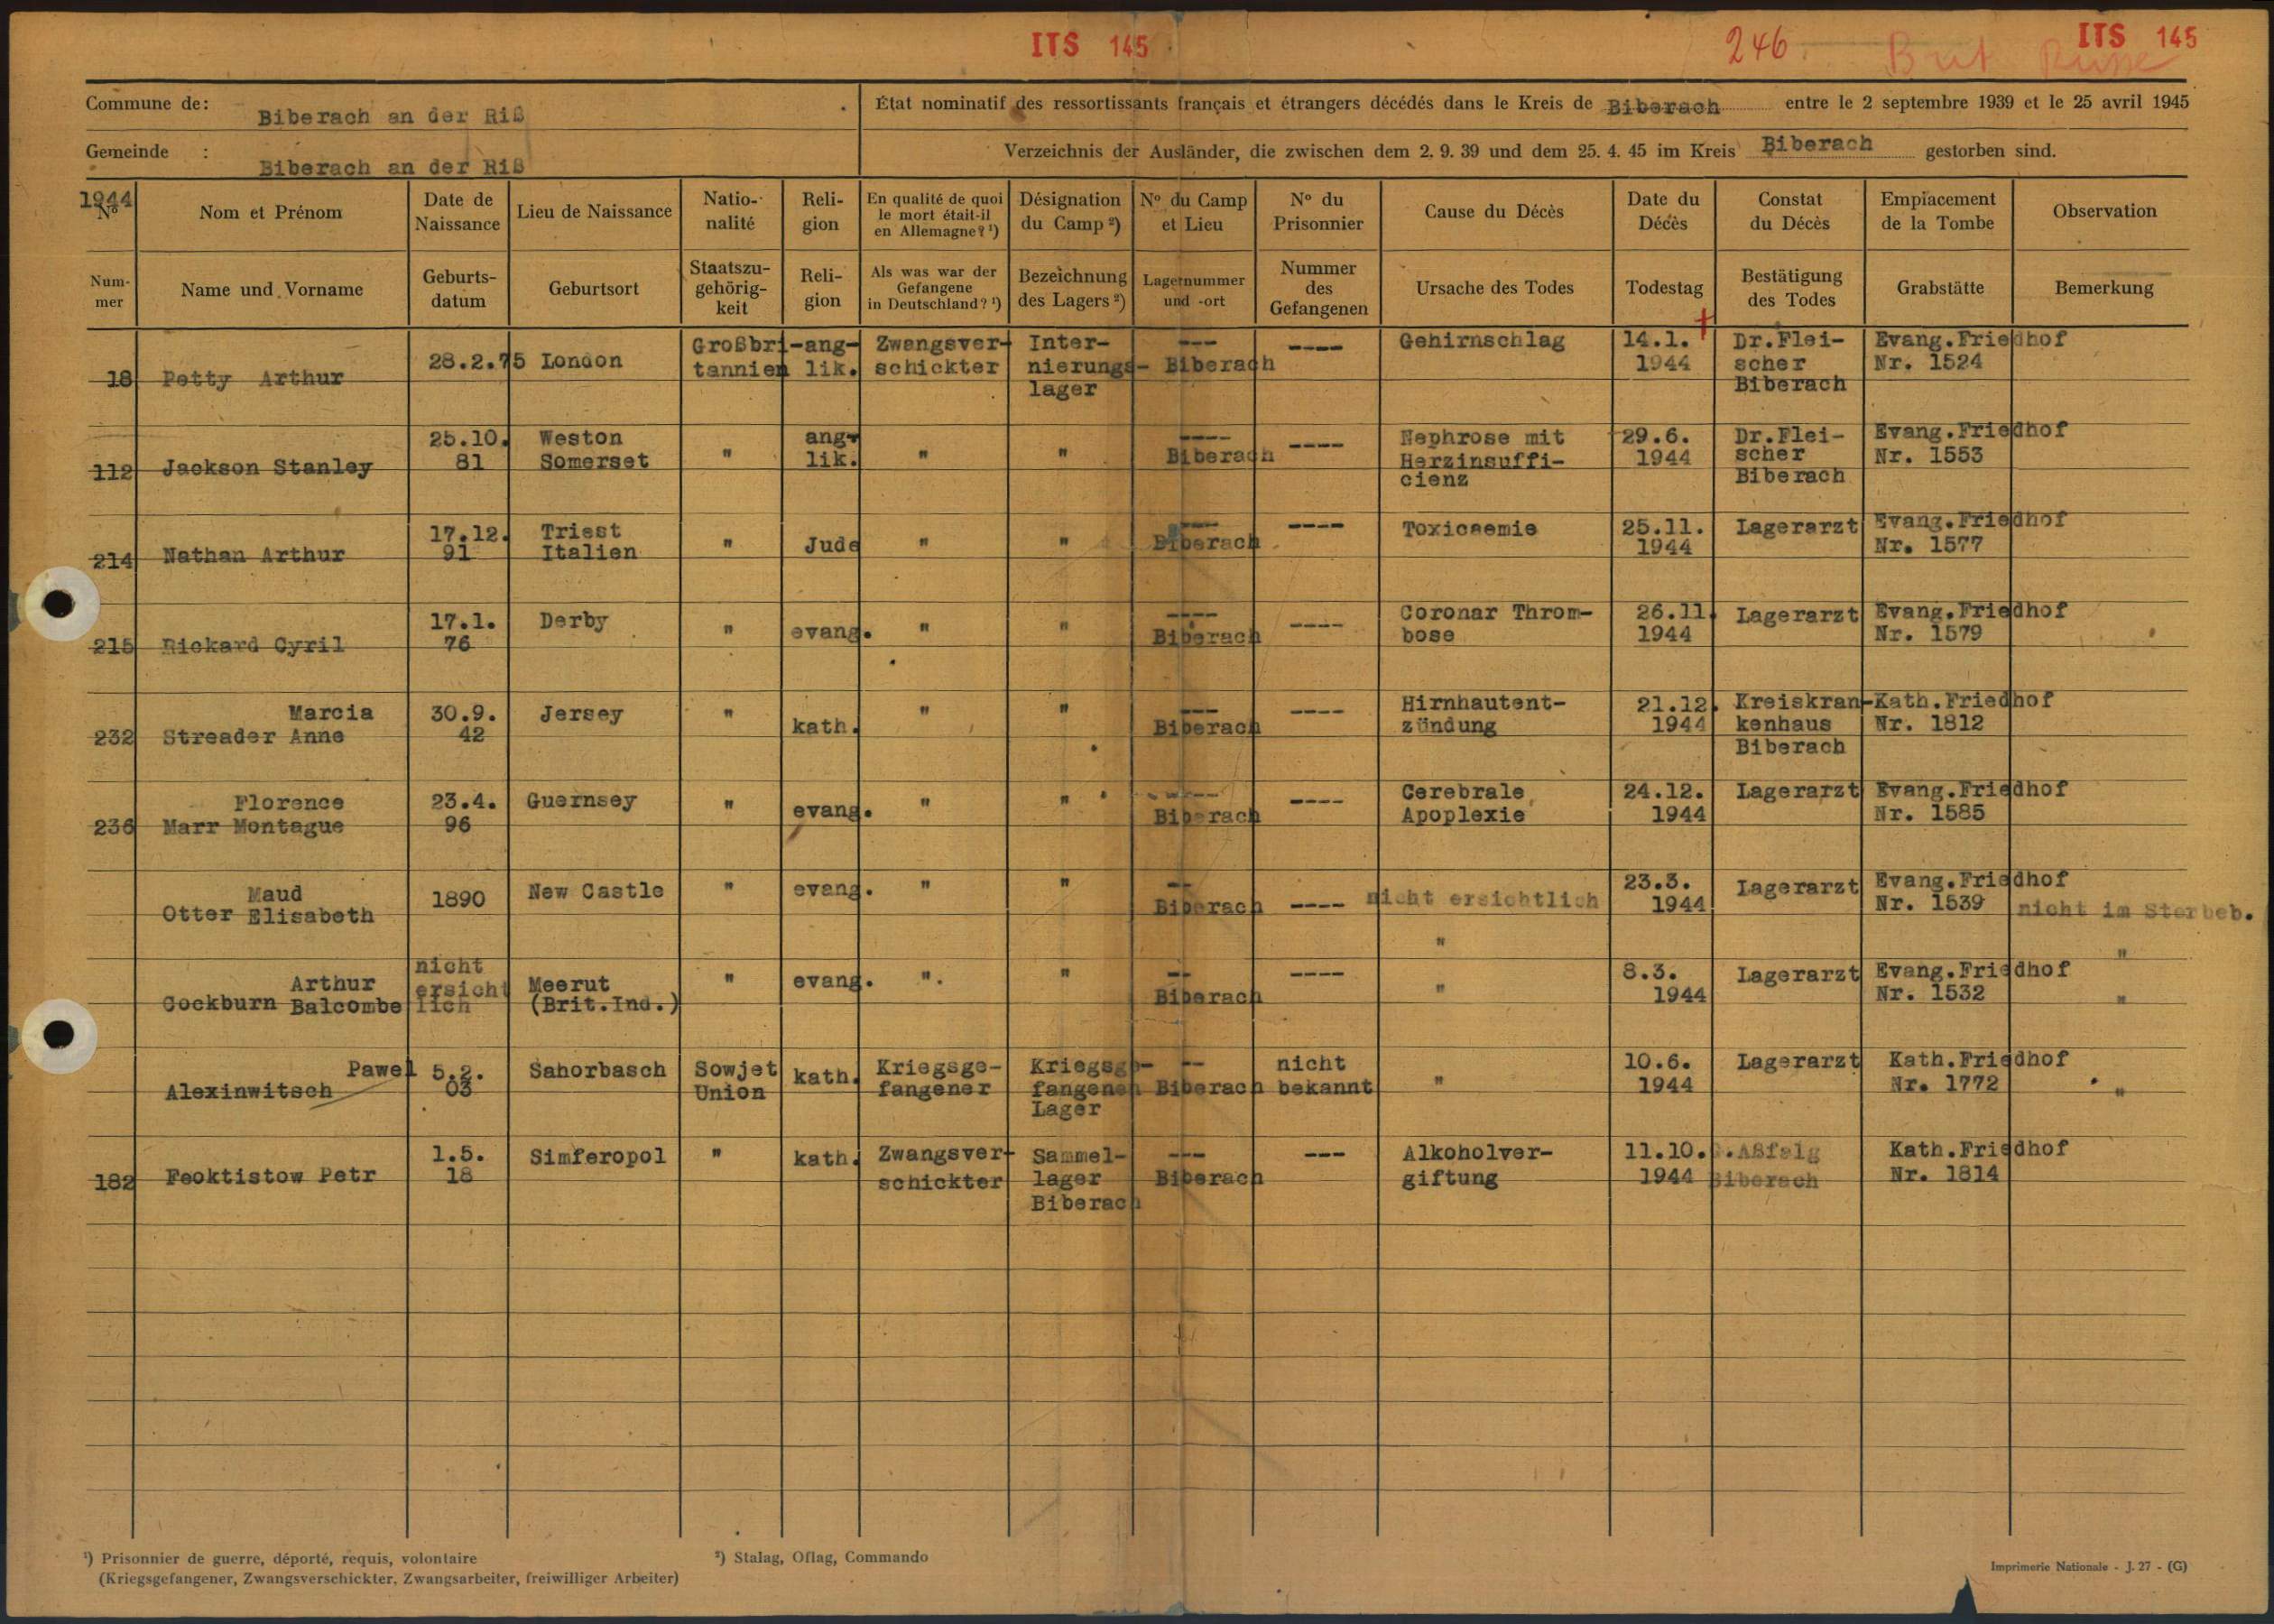 ITS 145
246. Brit Russe
ITS 145
Commune de: Biberach an der Riß
État nominatif des ressortissants français et étrangers décédés dans le Kreis de Biberach entre le 2 septembre 1939 et le 25 avril 1945
Gemeinde : Biberach an der Riß
Verzeichnis der Ausländer, die zwischen dem 2. 9. 39 und dem 25. 4. 45 im Kreis Biberach gestorben sind.
1944
Nº Nom et Prénom Date de Naissance Lieu de Naissance Natio-nalité Reli-gion En qualité de quoi le mort était-il en Allemagne? ¹) Désignation du Camp ²) Nº du Camp et Lieu Nº du Prisonnier Cause du Décès Date du Décès Constat du Décès Emplacement de la Tombe Observation
Num-mer Name und Vorname Geburts-datum Geburtsort Staatszu-gehörig-keit Reli-gion Als was war der Gefangene in Deutschland? ¹) Bezeichnung des Lagers ²) Lagernummer und -ort Nummer des Gefangenen Ursache des Todes Todestag Bestätigung des Todes Grabstätte Bemerkung
18 Petty Arthur 28.2.75 London Großbri-tannien ang-lik. Zwangsver-schickter Inter-nierungs-lager --- Biberach ---- Gehirnschlag 14.1. 1944 Dr.Flei-scher Biberach Evang.Friedhof Nr. 1524
112 Jackson Stanley 25.10. 81 Weston Somerset " ang-lik. " " ---- Biberach ---- Nephrose mit Herzinsuffi-cienz 29.6. 1944 Dr.Flei-scher Biberach Evang.Friedhof Nr. 1553
214 Nathan Arthur 17.12. 91 Triest Italien " Jude " " --- Biberach ---- Toxicaemie 25.11. 1944 Lagerarzt Evang.Friedhof Nr. 1577
215 Rickard Cyril 17.1. 76 Derby " evang. " " ---- Biberach ---- Coronar Throm-bose 26.11. 1944 Lagerarzt Evang.Friedhof Nr. 1579
232 Streader Marcia Anne 30.9. 42 Jersey " kath. " " --- Biberach ---- Hirnhautent-zündung 21.12. 1944 Kreiskran-kenhaus Biberach Kath.Friedhof Nr. 1812
236 Marr Florence Montague 23.4. 96 Guernsey " evang. " " ---- Biberach ---- Cerebrale Apoplexie 24.12. 1944 Lagerarzt Evang.Friedhof Nr. 1585
Otter Maud Elisabeth 1890 New Castle " evang. " " -- Biberach ---- nicht ersichtlich 23.3. 1944 Lagerarzt Evang.Friedhof Nr. 1539 nicht im Sterbeb.
" "
Cockburn Arthur Balcombe nicht ersicht lich Meerut (Brit.Ind.) " evang. ". " -- Biberach ---- " 8.3. 1944 Lagerarzt Evang.Friedhof Nr. 1532 "
Alexinwitsch Pawel 5.2. 03 Sahorbasch Sowjet Union kath. Kriegsge-fangener Kriegsge-fangenen Lager -- Biberach nicht bekannt " 10.6. 1944 Lagerarzt Kath.Friedhof Nr. 1772 "
182 Feoktistow Petr 1.5. 18 Simferopol " kath. Zwangsver-schickter Sammel-lager Biberach --- Biberach --- Alkoholver-giftung 11.10. 1944 Aßfalg Biberach Kath.Friedhof Nr. 1814
¹) Prisonnier de guerre, déporté, requis, volontaire
(Kriegsgefangener, Zwangsverschickter, Zwangsarbeiter, freiwilliger Arbeiter)
²) Stalag, Oflag, Commando
Imprimerie Nationale - J. 27 - (G)